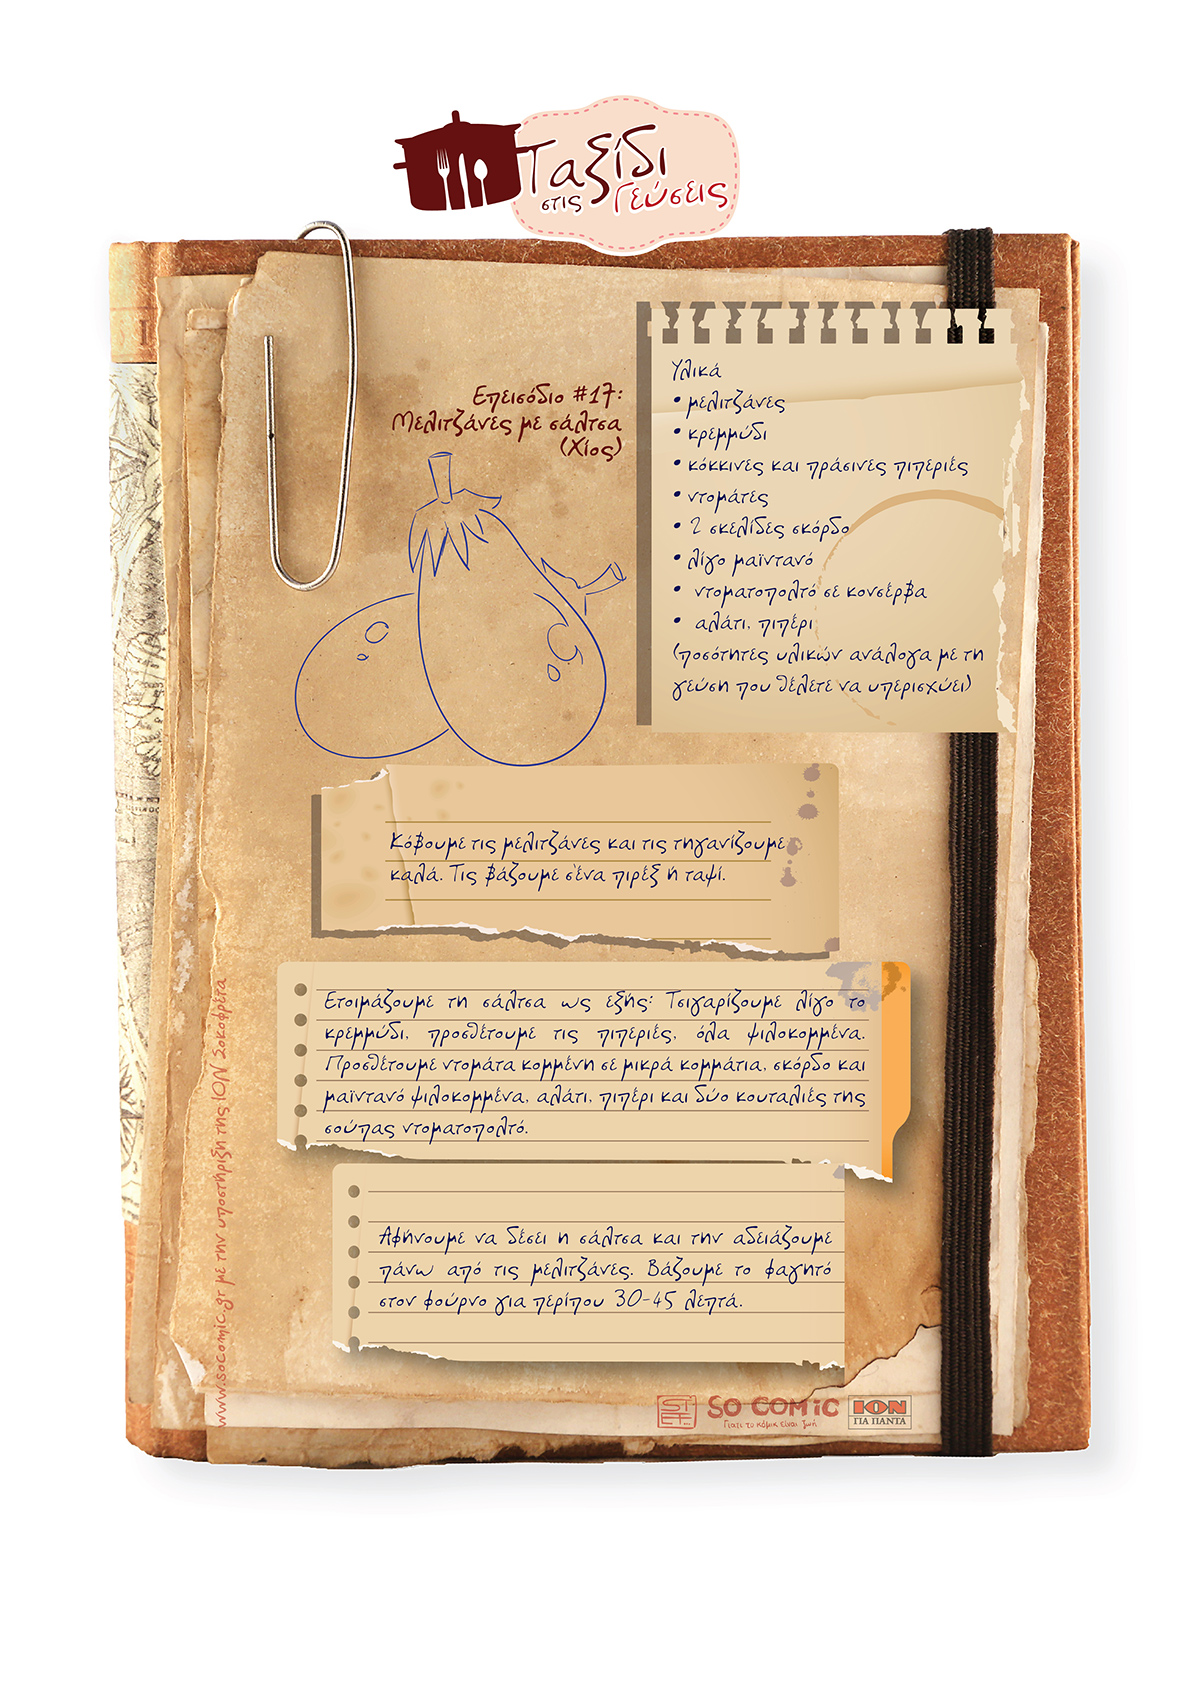 Ταξίδι
στις Γεύσεις
Επεισόδιο #17:
Μελιτζάνες με σάλτσα
(Χίος)
Υλικά
• μελιτζάνες
• κρεμμύδι
• κόκκινες και πράσινες πιπεριές
• ντομάτες
• 2 σκελίδες σκόρδο
• λίγο μαϊντανό
• ντοματοπολτό σε κονσέρβα
• αλάτι, πιπέρι
(ποσότητες υλικών ανάλογα με τη
γεύση που θέλετε να υπερισχύει)
Κόβουμε τις μελιτζάνες και τις τηγανίζουμε
καλά. Τις βάζουμε σ'ένα πιρέξ ή ταψί.
Ετοιμάζουμε τη σάλτσα ως εξής: Τσιγαρίζουμε λίγο το
κρεμμύδι, προσθέτουμε τις πιπεριές, όλα ψιλοκομμένα.
Προσθέτουμε ντομάτα κομμένη σε μικρά κομμάτια, σκόρδο και
μαϊντανό ψιλοκομμένα, αλάτι, πιπέρι και δύο κουταλιές της
σούπας ντοματοπολτό.
Αφήνουμε να δέσει η σάλτσα και την αδειάζουμε
πάνω από τις μελιτζάνες. Βάζουμε το φαγητό
στον φούρνο για περίπου 30-45 λεπτά.
www.socomic.gr με την υποστήριξη της ΙΟΝ Σοκοφρέτα
SO COMIC
Γιατί το κόμικ είναι ζωή
ΙΟΝ
ΓΙΑ ΠΑΝΤΑ